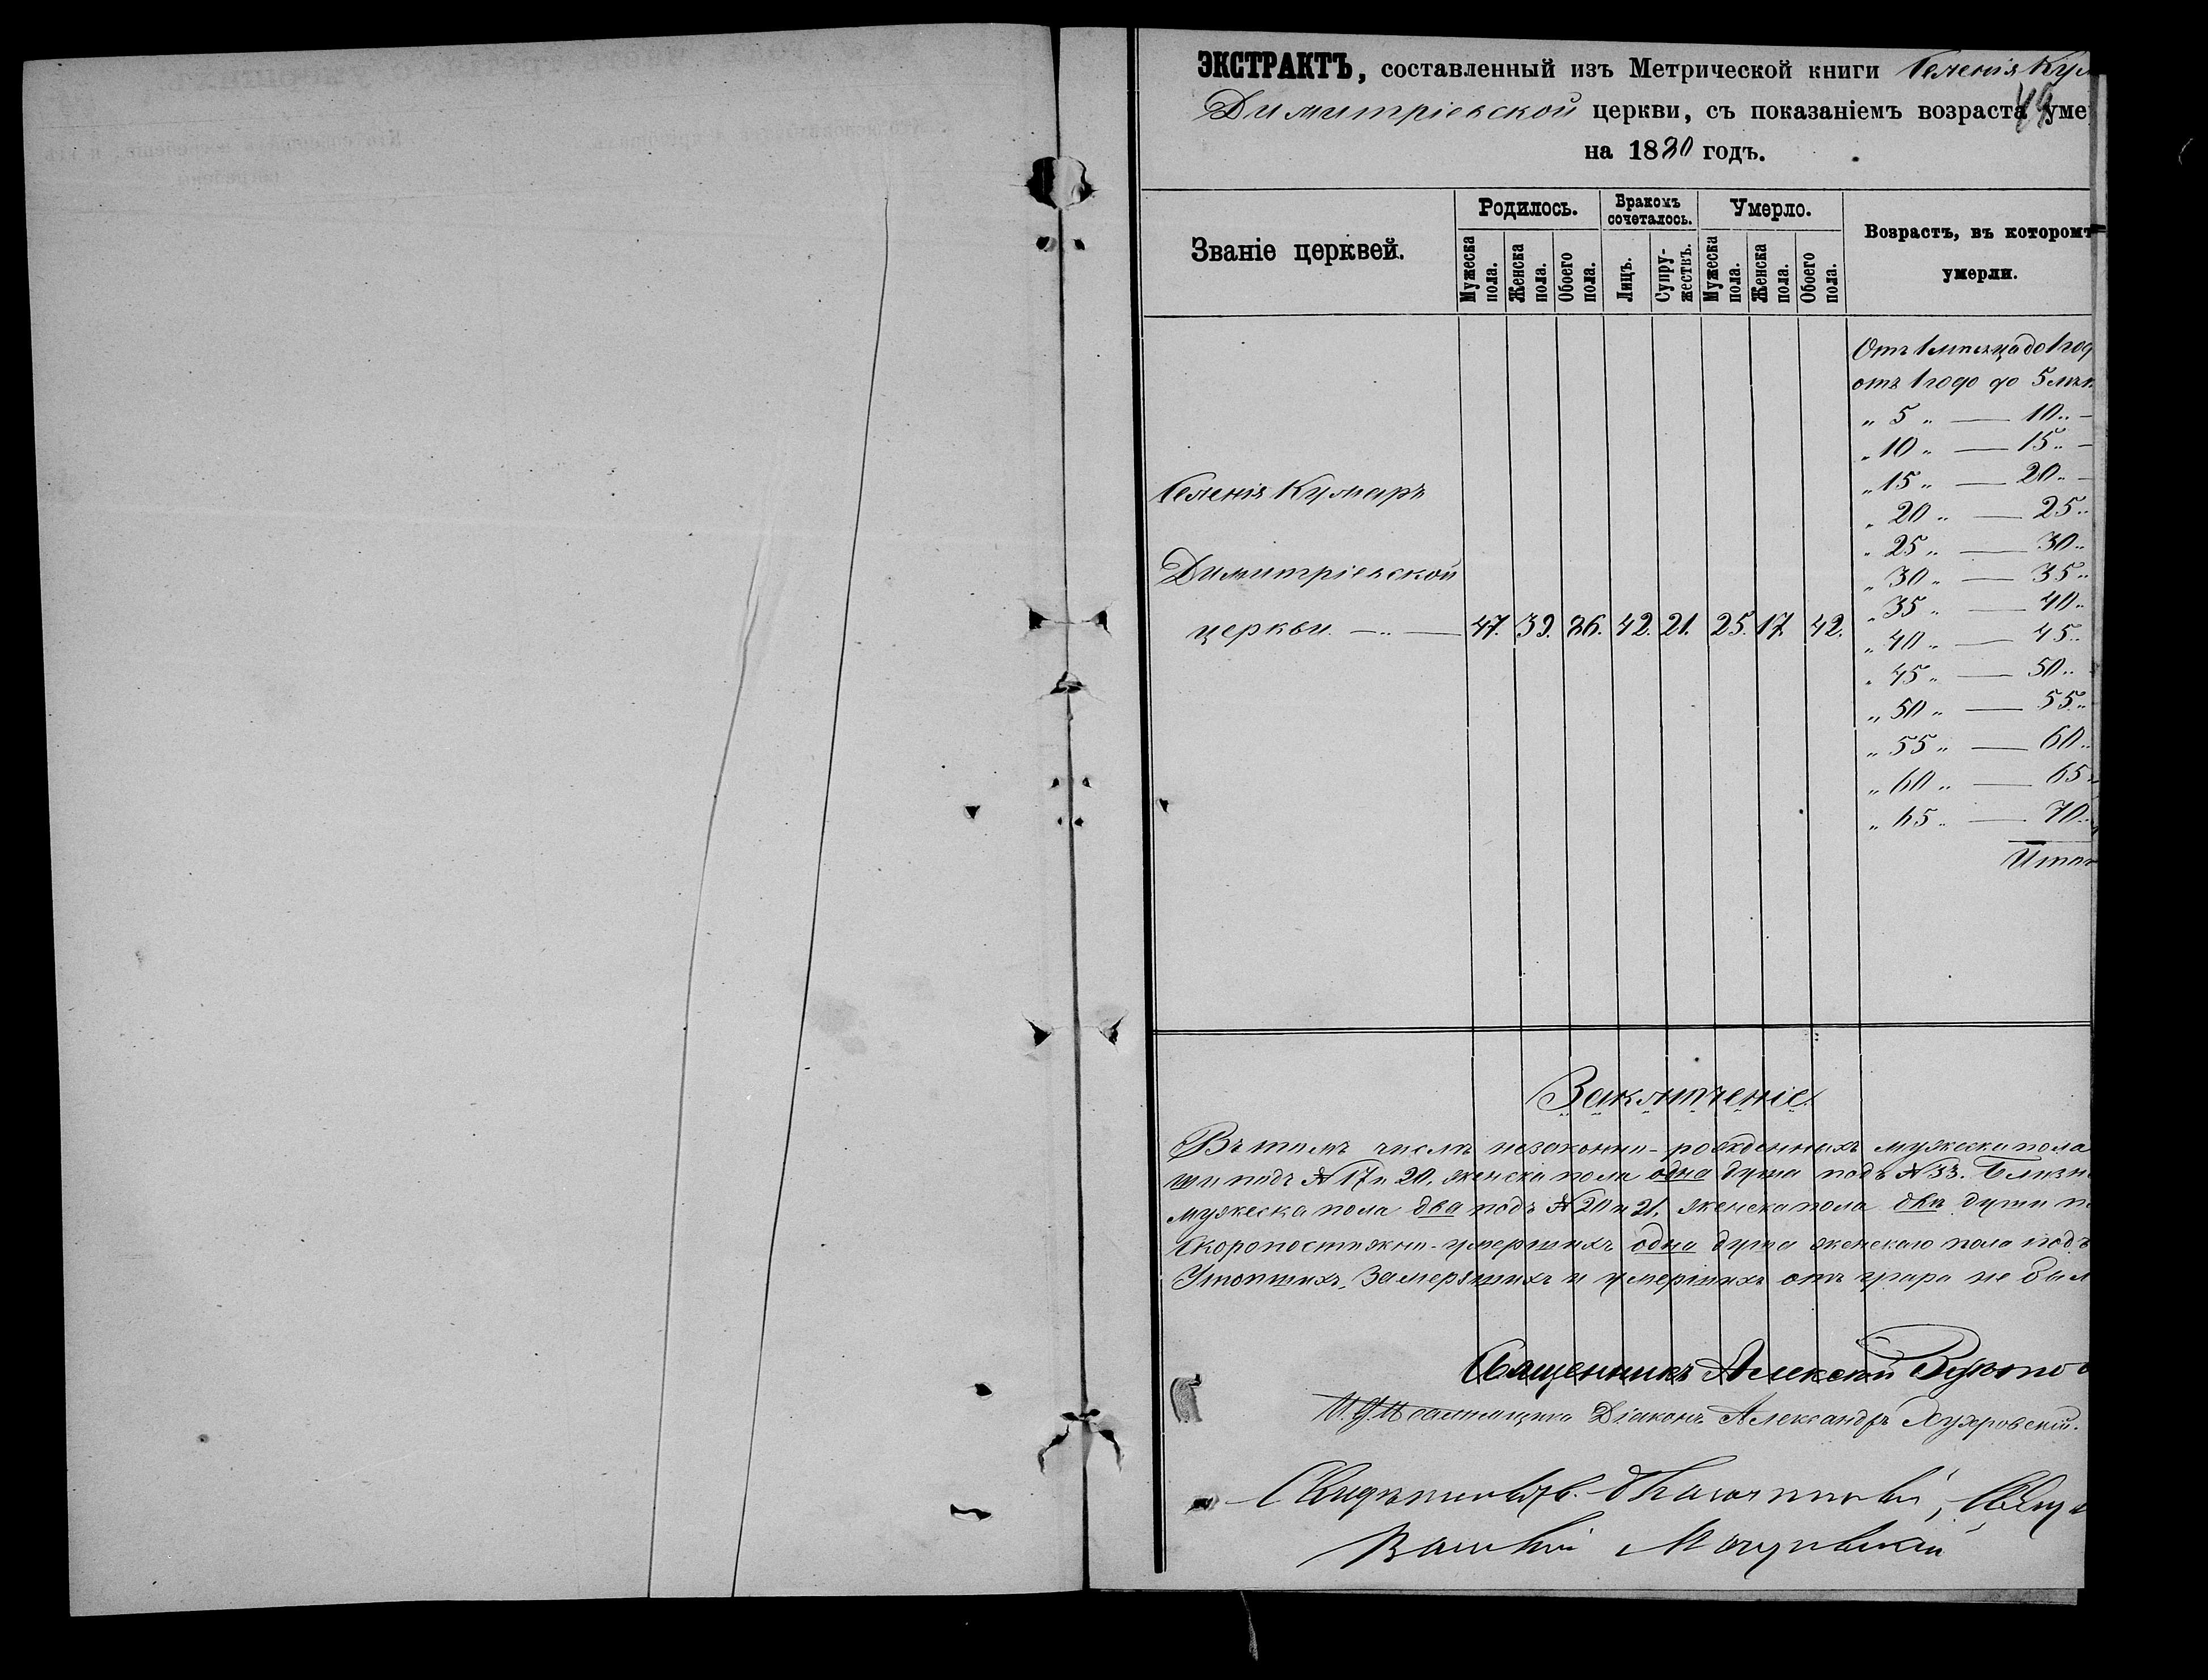 ЭКСТРАКТЪ, составленный изъ Метрической книги Селенія Кум
Димитріевской церкви, съ показаніемъ возраста уме
на 1880 годъ.
Званіе церквей.
Родилось.
Бракомъ сочеталось.
Умерло.
Возрастъ, въ которомъ
умерли.
Мужеска пола.
Женска пола.
Обоего пола.
Лицъ.
Супружествъ.
Мужеска пола.
Женска пола.
Обоего пола.
Отъ 1 мѣсяца до 1 год
отъ 1 года до 5 лѣт
„ 5 „ — 10 „ —
„ 10 „ — 15 „ —
„ 15 „ — 20 „ —
„ 20 „ — 25 „
„ 25 „ — 30 „
„ 30 „ — 35 „
„ 35 „ — 40 „
„ 40 „ — 45 „
„ 45 „ — 50 „
„ 50 „ — 55 „
„ 55 „ — 60 „
„ 60 „ — 65 „
„ 65 „ — 70 „
Итог
Селенія Кумаръ
Димитріевской
церкви — „ — 47. 39. 86. 42. 21. 25. 17. 42.
Заключеніе
Въ томъ числѣ незаконно-рожденныхъ мужеска пола
ши подъ № 17 и 20, женска пола одна душа подъ № 33. Близн
мужеска пола два подъ № 20 и 21, женска пола двѣ души п
Скоропостижно-умершихъ одна душа женскаго пола подъ
Утопшихъ, замерзшихъ и умершихъ отъ не был
Священникъ Алексѣй
И. д. Псаломщика Діаконъ Александръ